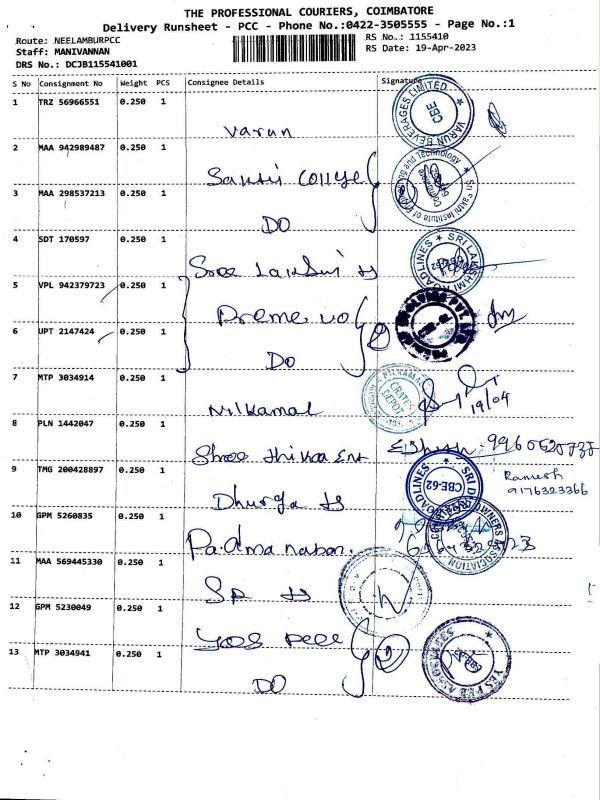 THE PROFESSIONAL COURIERS, COIMBATORE
Delivery Runsheet - PCC - Phone No.:0422-3505555 - Page No.:1
Route: NEELAMBURPCC
RS No.: 1155410
Staff: MANIVANNAN
RS Date: 19-Apr-2023
DRS No.: DCJB115541001
S No Consignment No Weight PCS Consignee Details Signature
1 TRZ 56966551 0.250 1
Varun
VARUN BEVERAGES LIMITED ★ CBE ★
2 MAA 942989487 0.250 1
Sakthi College
3 MAA 298537213 0.250 1
DO
4 SDT 170597 0.250 1
Sree Lakshmi
ROADLINES ★ SRI LAKSHMI
5 VPL 942379723 0.250 1
6 UPT 2147424 0.250 1
DO
7 MTP 3034914 0.250 1
Nilkamal
NILKAMAL CRATES DEPOT
19/04
8 PLN 1442047 0.250 1
Shree
9 TMG 200428897 0.250 1
Dhurga
ROADLINES CBE-62 SRI
Ramesh
9176323366
10 GPM 5260835 0.250 1
Padmanaban.
OWNERS ASSOCIATION
11 MAA 569445330 0.250 1
SP
12 GPM 5230049 0.250 1
Yos Pee
13 MTP 3034941 0.250 1
DO
YES PEE ASSOCIATES